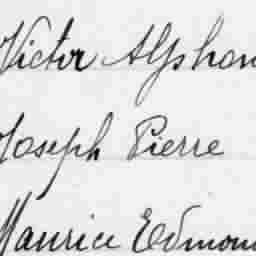 Victor Alphon
Joseph Pierre
Maurice Edmon